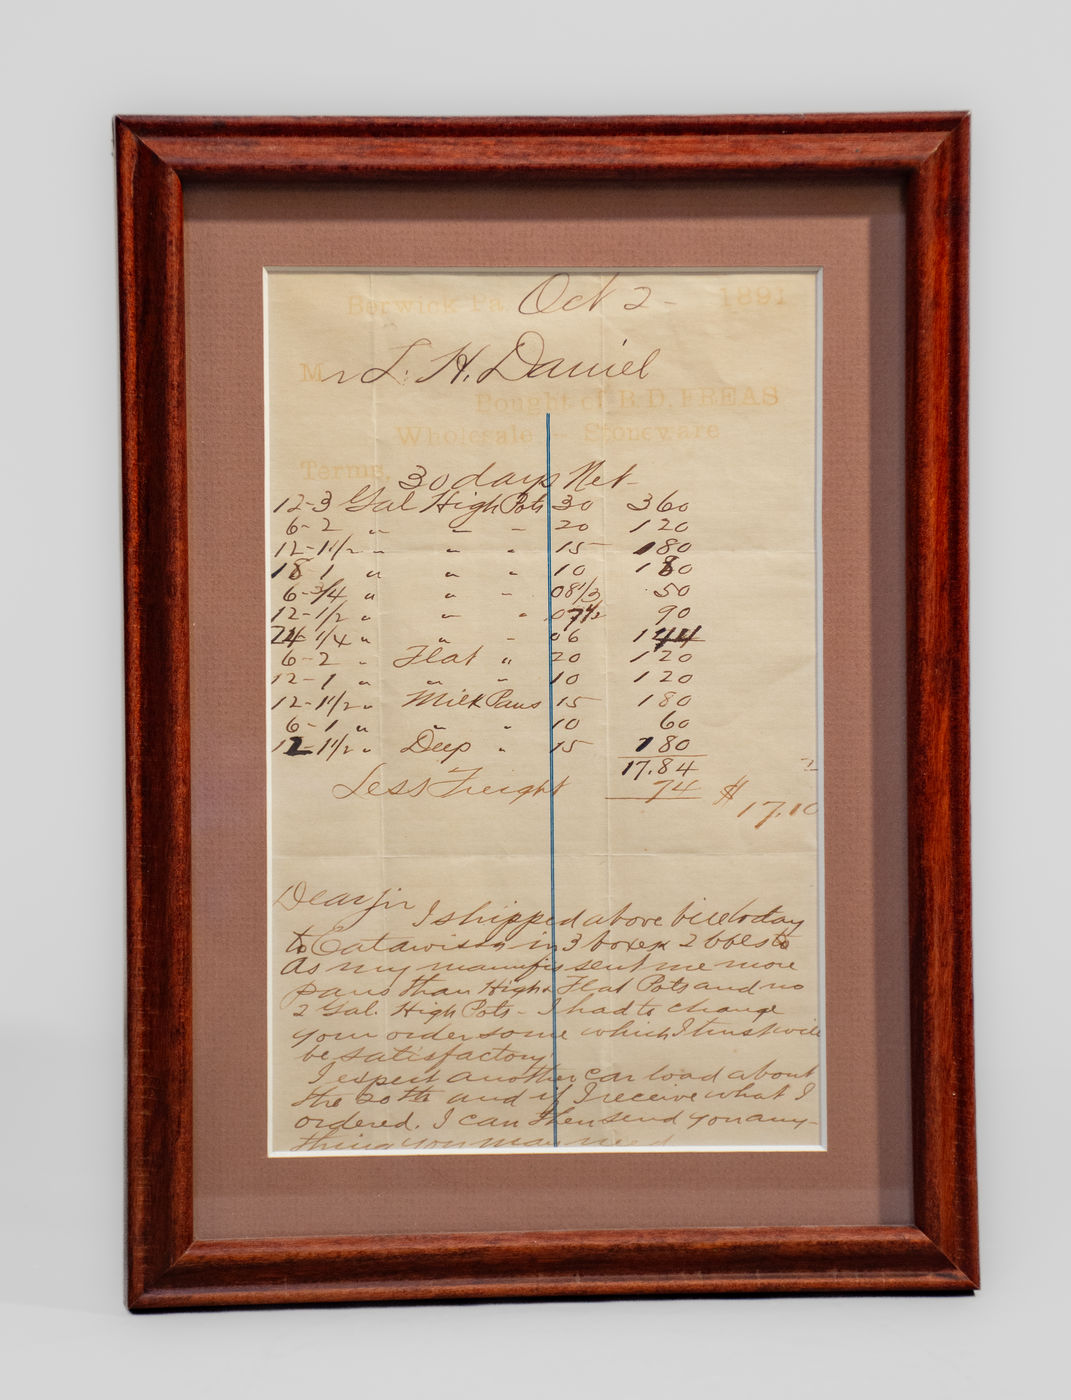 Berwick Pa. Oct 2 - 1891
Mr L. H. Daniel
Bought of B. D. FREAS
Wholesale - Stoneware
Terms, 30 days Net -
12-3 Gal High Pots 30 360
6-2 " " " 20 120
12-1 1/2 " " " 15 180
18 1 " " " 10 180
6-3/4 " " " 08 1/3 .50
12-1/2 " " " 07 1/2 90
24 1/4 " " " 06 144
6-2 " Flat " 20 120
12-1 " " " 10 120
12-1 1/2 " Milk Pans 15 180
6-1 " " " 10 60
12-1 1/2 " Deep " 15 180
17.84
Less Freight 74 $
17.10
Dear Sir
I shipped above bill today
to Catawissa in 3 boxes 2 bbls
As my manufrs sent me more
pans than High & Flat Pots and no
2 Gal. High Pots - I had to change
your order some which I trust will
be satisfactory
I expect another car load about
the 20th and if I receive what I
ordered. I can then send you any-
thing you may need